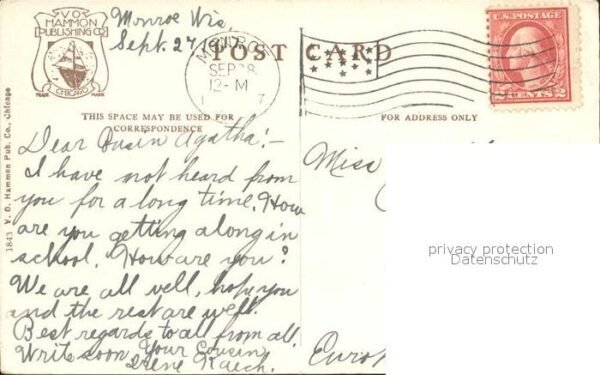 V.O.
HAMMON
PUBLISHING CO.
CHICAGO
TRADE MARK
Monroe Wis.
Sept. 27
POST CARD
SEP 28
12-M
U.S. POSTAGE
2 CENTS 2
THIS SPACE MAY BE USED FOR
CORRESPONDENCE
FOR ADDRESS ONLY
1843 V. O. Hammon Pub. Co., Chicago
Dear Cusin Agatha:-
I have not heard from
you for a long time. How
are you getting along in
school. How are you?
We are all well, hope you
and the rest are well.
Best regards to all from all.
Write soon Your Cousin
Irene Kaech.
Miss
privacy protection
Datenschutz